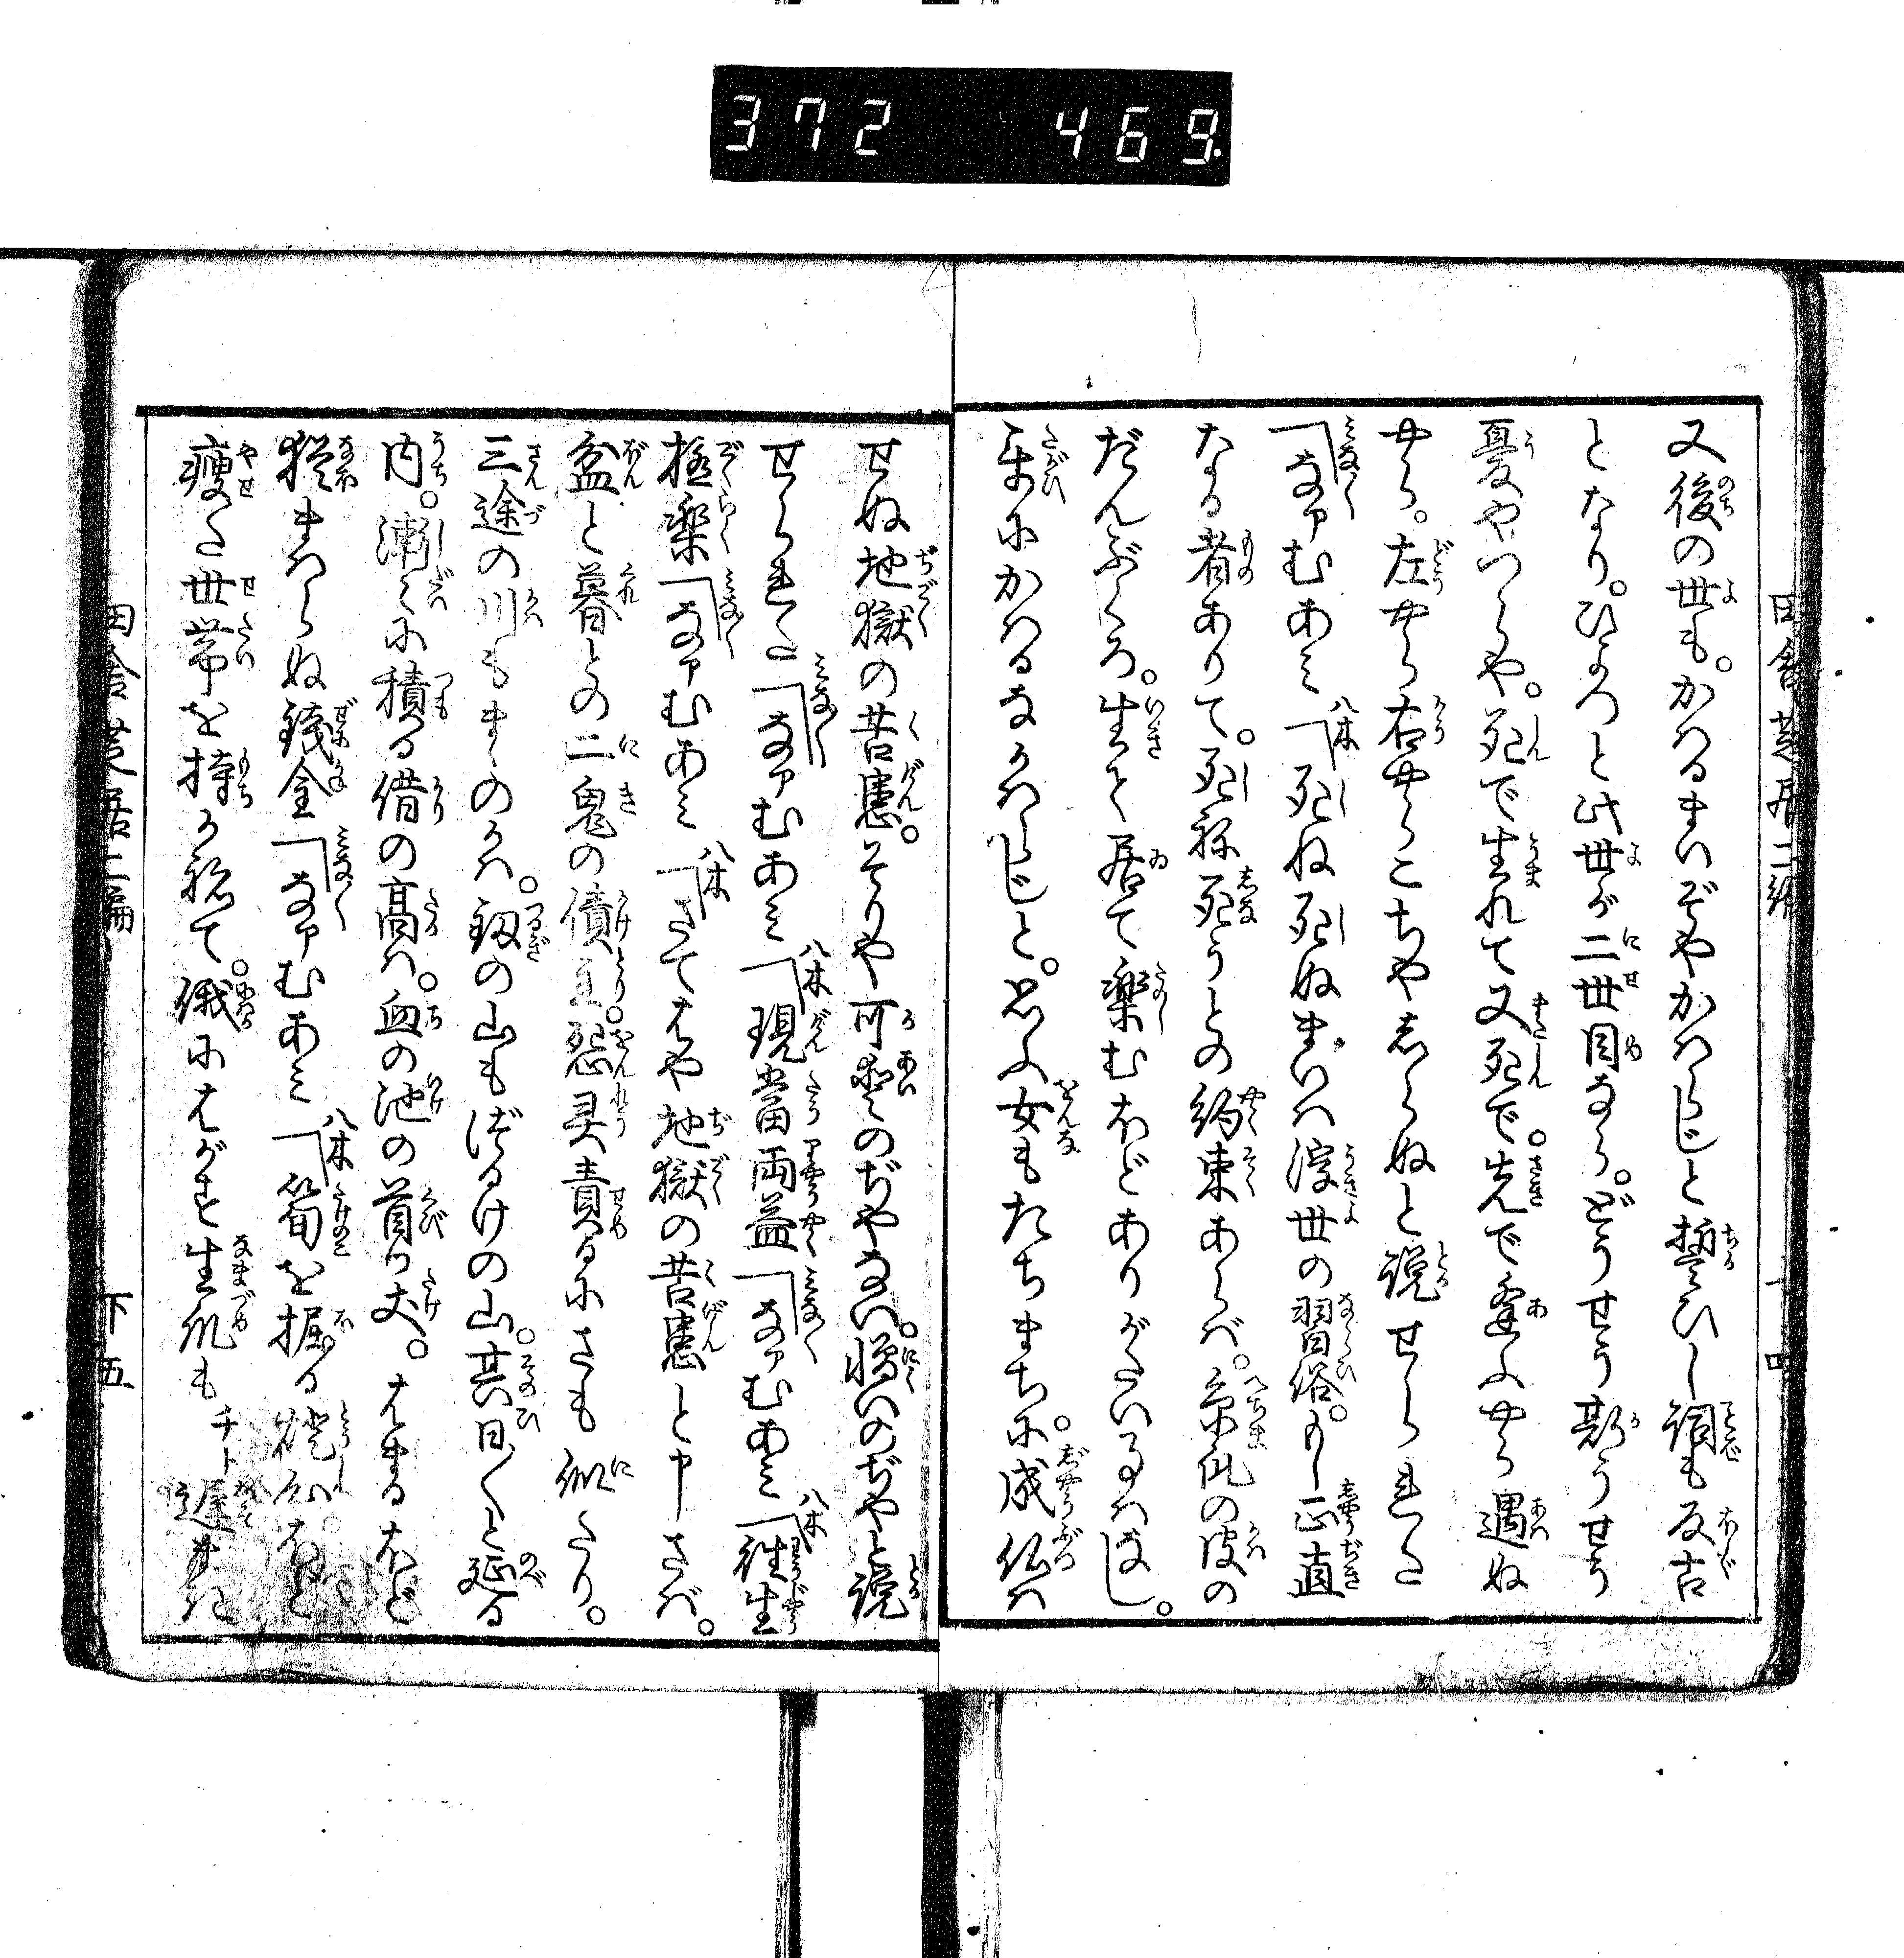 372 469
田舎芝居二編
又後の世も。かはるまいぞやかはらじと誓ひし詞も反古
となり。ひよつと此世が二世目なら。どうせう斯うせう
憂やつらや。死で生れて又死で。先で逢ふやら遇ぬ
やら。左やら右やらこちや志らぬと説せられた
「なアむあミ「死ね死ぬまいハ浮世の習俗。もし正直
なる者ありて。死ね死うとの約束あらバ。糸瓜の皮の
だんぶくろ。生て居て楽むほどありがたい事ハなし。
互にかはるなかはらじと。思ふ女もたちまちに。成仏ハ
せぬ地獄の苦患。そりや可愛のぢやない。憎いのぢやと説
せられた「なアむあミ「現當両益「なアむあミ「往生
極楽「なアむあミ「さてはや地獄の苦患と申さバ。
盆と暮との二鬼の債主。怨灵責るにさも似たり。
三途の川もまゝのかハ。釼の山もづるけの山。其日〳〵と延る
内。漸々に積る借の高ハ。血の池の首り丈。はまるほど
猶まはらぬ銭金「なアむあミ「筍を掘る
痩た世帯を持かねて。俄にはがす生爪も チト遅まき
田舎芝居二編
下五